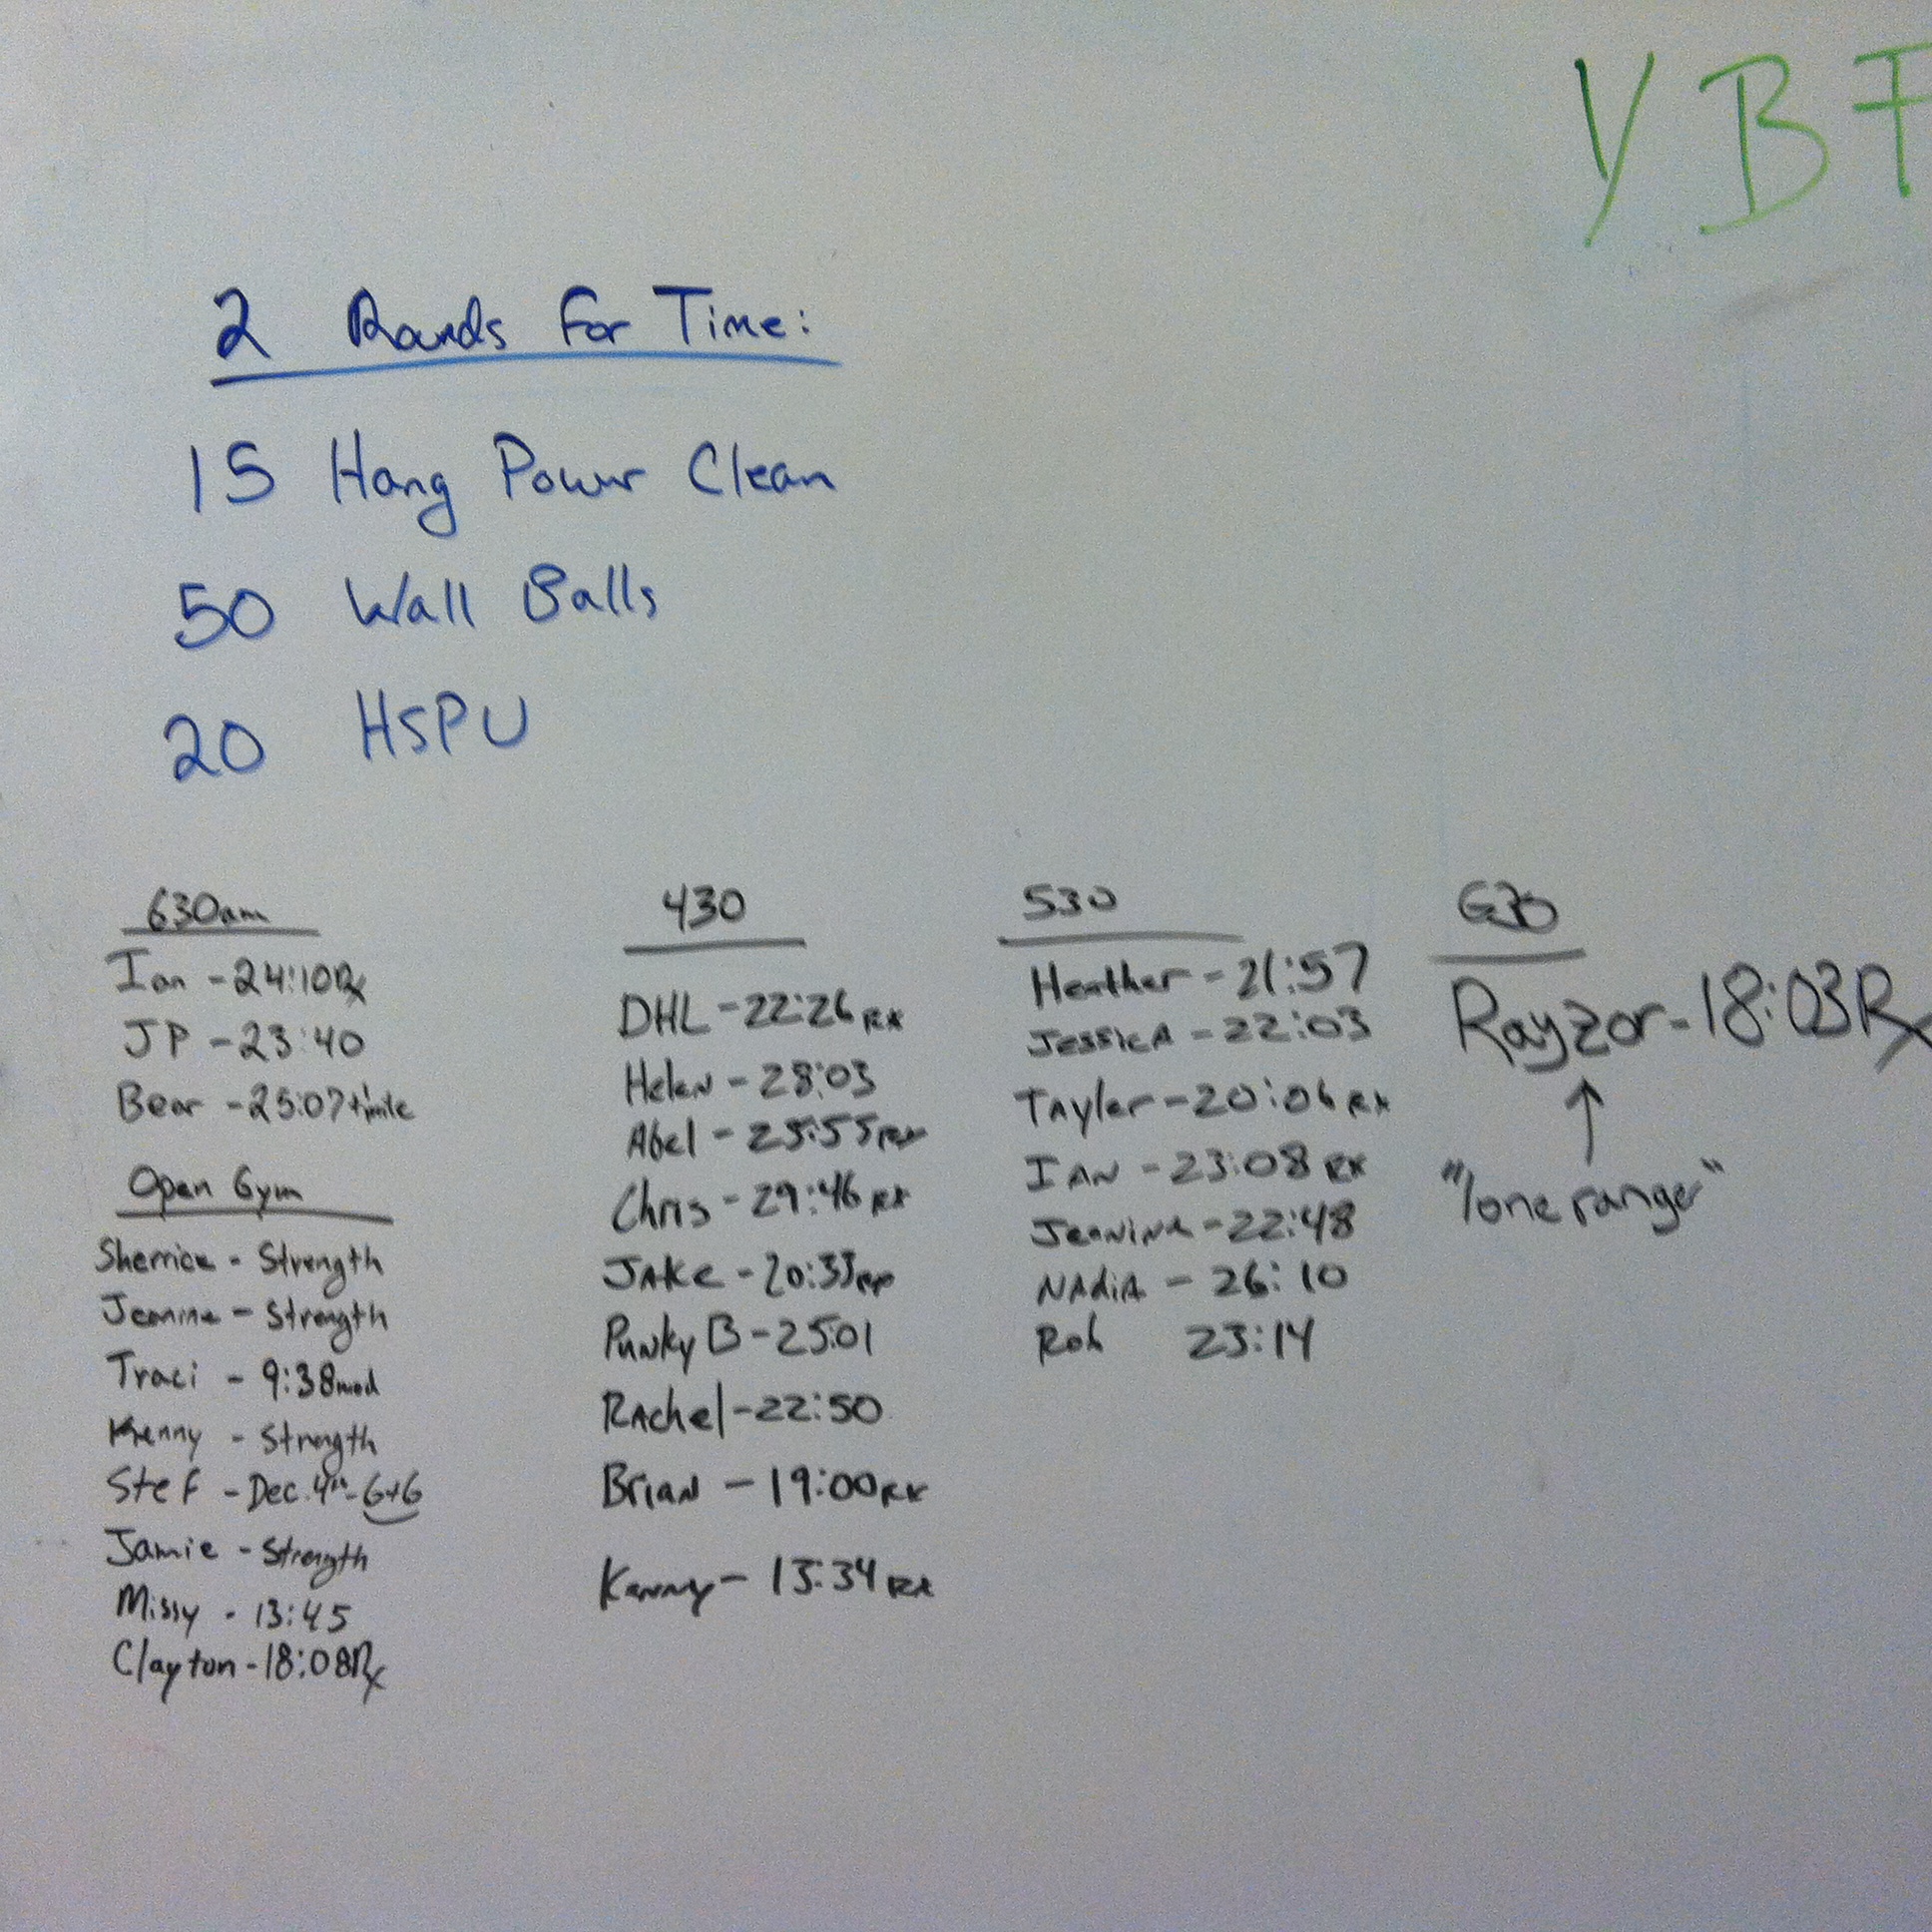 YBF
2 Rounds For Time:
15 Hang Power Clean
50 Wall Balls
20 HSPU
630am
Ian - 24:10 Rx
JP - 23:40
Bear - 25:07 + 1 mile
Open Gym
Sherrice - Strength
Jeanine - Strength
Traci - 9:38 mod
Kenny - Strength
Stef - Dec. 4th - 6+6
Jamie - Strength
Missy - 13:45
Clayton - 18:08 Rx
430
DHL - 22:26 RX
Helen - 28:03
Abel - 25:55 RX
Chris - 29:46 RX
JAKe - 20:33
Punky B - 25:01
RAchel - 22:50
BriaN - 19:00 RX
Kenny - 13:34 RX
530
Heather - 21:57
JessicA - 22:03
TAyler - 20:06 RX
IAN - 23:08 RX
JeaNiNe - 22:48
NAdiA - 26:10
Rob 23:14
630
Rayzor - 18:03 Rx
"lone ranger"